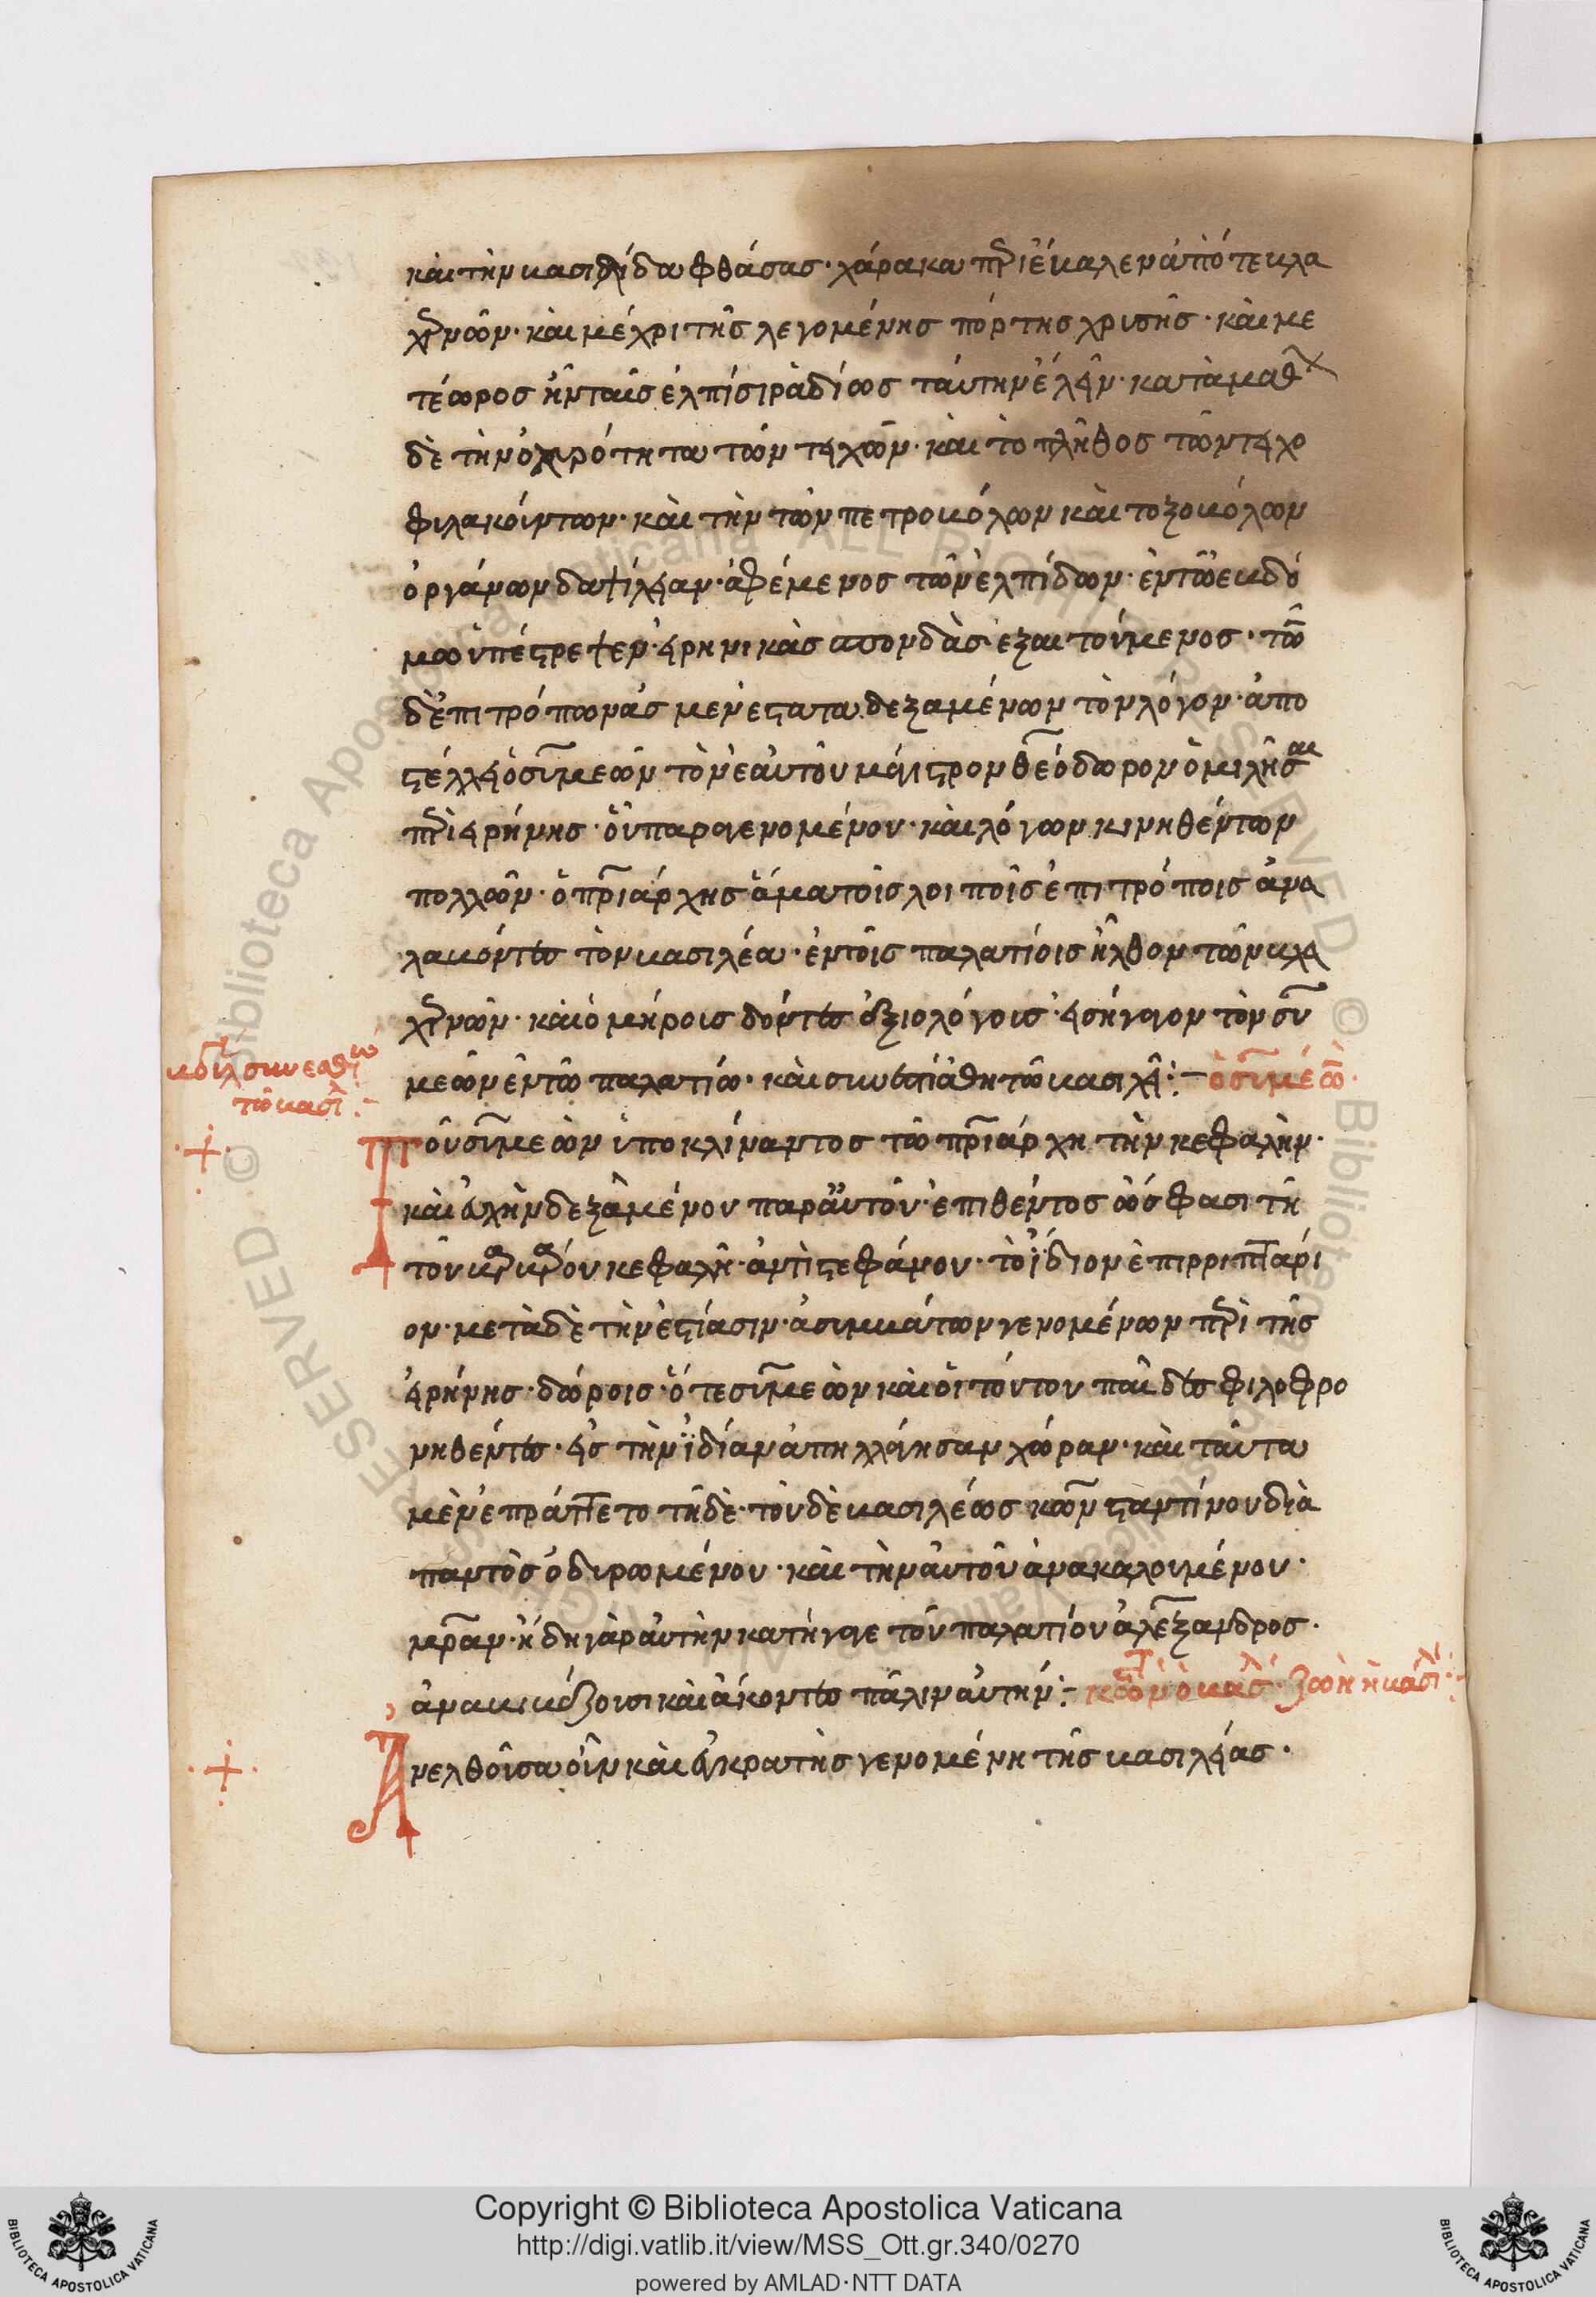 καὶ τὴν βασιλίδα φθάσας· χάρακα πρὶ ἔβαλεν ἀπό τε βλα
χρνῶν· καὶ μέχρι τῆς λεγομένης πόρτης χρισῆς· καὶ με
τέωρος ἦν ταῖς ἐλπίσι ῥαδίως ταύτην ἐλεῖν· καταμαθ
δὲ τὴν ὀχιρότητα τῶν τειχῶν· καὶ τὸ πλῆθος τῶν τειχο
φιλακούντων· καὶ τὴν τῶν πετροβόλων καὶ τοξοβόλων
ὀργάνων δαψίλειαν· ἀφέμενος τῶν ἐλπίδων· ἐν τῶ ἑβδό
μω ὑπέστρεψεν· εἰρηνικὰς σπονδὰς ἐξαιτούμενος· τῶ
δὲ ἐπιτρόπων ἀσμενέστατα δεξαμένων τὸν λόγον· ἀπο
στέλλει ὁ συμεῶν τὸν ἑαυτοῦ μάγιστρον θεόδωρον ὁμιλῆσαι
πρὶ εἰρήνης· οὗ παραγενομένου· καὶ λόγων κινηθέντων
πολλῶν· ὁ πριάρχης ἅμα τοῖς λοιποῖς ἐπιτρόποις ἀνα
λαβόντες τὸν βασιλέα· ἐν τοῖς παλατίοις ἦλθον τῶν βλα
χρνῶν· καὶ ὁμήροις δόντες ἀξιολόγοις· εἰσήγαγον τὸν συ
μεῶν ἐν τῶ παλατίω· καὶ συνεστιάθη τῶ βασιλεῖ:– ὁ συμέω.
τῶ βασι:–
Τοῦ συμεὼν ὑποκλίναντος τῶ πριάρχη τὴν κεφαλὴν·
καὶ εὐχὴν δεξαμένου παρ' αὐτοῦ· ἐπιθέντος ὥς φασι τῆ
τοῦ βαρβάρου κεφαλῆ· ἀντὶ στεφάνου· τὸ ἴδιον ἐπιρριπτάρι
ον· μετὰ δὲ τὴν ἑστίασιν· ἀσυμβάτων γενομένων πρὶ τῆς
εἰρήνης· δώροις· ὅ τε συμεὼν καὶ οἱ τούτου παῖδες φιλοφρο
νηθέντες· εἰς τὴν ἰδίαν ἀπηλλάγησαν χώραν· καὶ ταῦτα
μὲν ἐπράττετο τῆδε· τοῦ δὲ βασιλέως κωνσταντίνου διὰ
παντὸς ὀδυρωμένου· καὶ τὴν αὐτοῦ ἀνακαλουμένου·
μραν· ἤδη γὰρ αὐτὴν κατήγαγε τοῦ παλατίου ἀλέξανδρος·
ἀναβιβάζουσι καὶ ἄκοντες πάλιν αὐτήν:– κωντ ὁ βασιλ ζωὴ ἡ βασιλ:–
Ἀνελθοῦσα οὖν καὶ ἐγκρατὴς γενομένη τῆς βασιλείας·
Copyright © Biblioteca Apostolica Vaticana
http://digi.vatlib.it/view/MSS_Ott.gr.340/0270
powered by AMLAD·NTT DATA
BIBLIOTECA APOSTOLICA VATICANA
BIBLIOTECA APOSTOLICA VATICANA